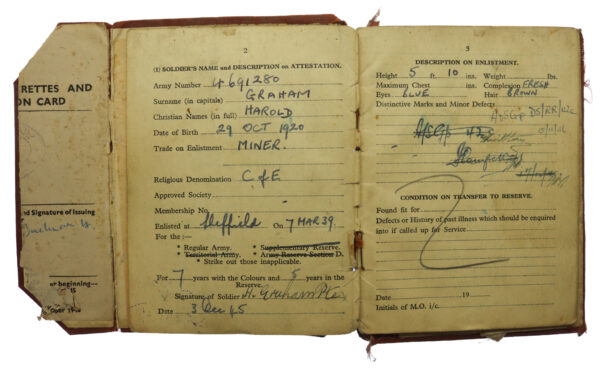 RETTES AND
ON CARD
nd Signature of Issuing
or beginning—
15
2
(I) SOLDIER'S NAME and DESCRIPTION on ATTESTATION.
Army Number 4691280
Surname (in capitals) GRAHAM
Christian Names (in full) HAROLD
Date of Birth 29 OCT 1920
Trade on Enlistment MINER.
Religious Denomination C of E
Approved Society
Membership No.
Enlisted at Sheffield On 7 MAR 39
For the :—
* Regular Army. * Supplementary Reserve.
* Territorial Army. * Army Reserve Section D.
* Strike out those inapplicable.
For 7 years with the Colours and 5 years in the
Reserve.
Signature of Soldier H. Graham
Date 3 Dec 45
3
DESCRIPTION ON ENLISTMENT.
Height 5 ft. 10 ins. Weight lbs.
Maximum Chest ins. Complexion FRESH
Eyes BLUE Hair BROWN
Distinctive Marks and Minor Defects
CONDITION ON TRANSFER TO RESERVE.
Found fit for
Defects or History of past illness which should be enquired
into if called up for Service
Date 19
Initials of M.O. i/c.